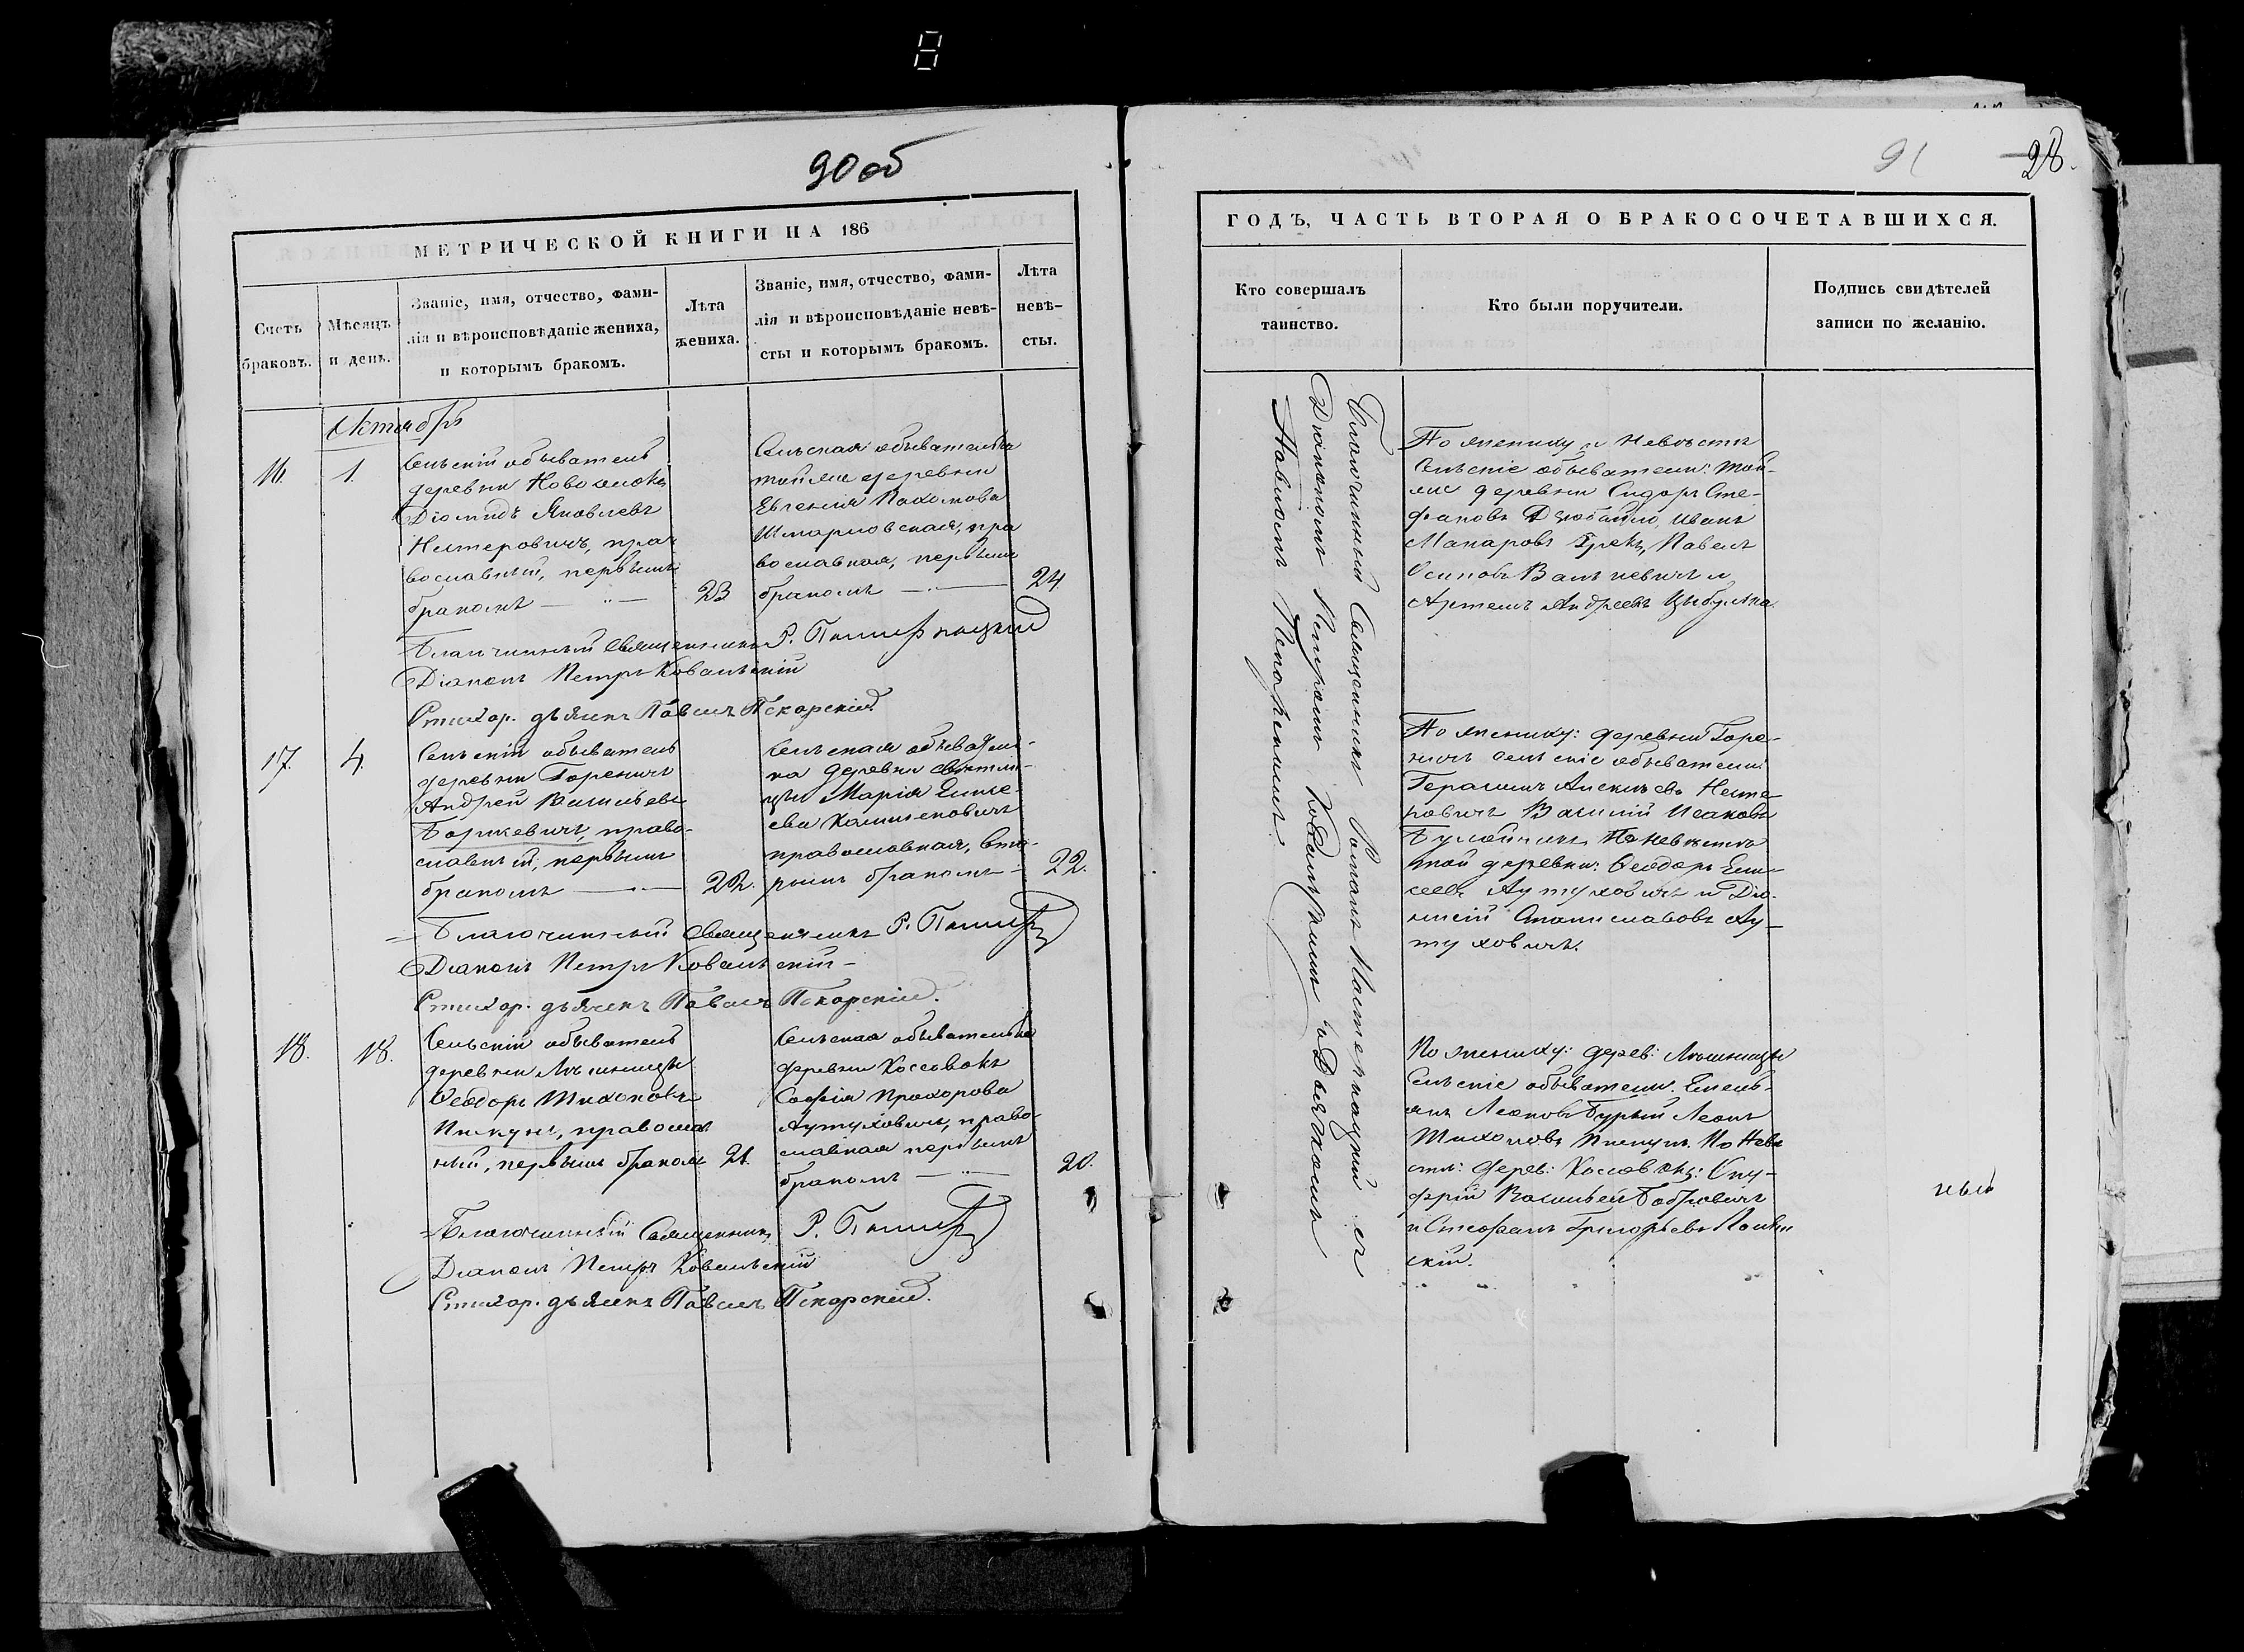 90 об
МЕТРИЧЕСКОЙ КНИГИ НА 186
Счетъ браковъ.
Мѣсяцъ и день.
Званіе, имя, отчество, фами-
лія и вѣроисповѣданіе жениха,
и которымъ бракомъ.
Лѣта жениха.
Званіе, имя, отчество, фами-
лія и вѣроисповѣданіе невѣ-
сты и которымъ бракомъ.
Лѣта невѣ-
сты.
Октябрь
16.
1.
Сельскій обыватель
деревни
Діомидъ Яковлевъ
Нестеровичъ, пра-
вославный, первымъ
бракомъ
23
Сельская обывателька
той же деревни
Евгенія Пахомова
православная, первымъ
бракомъ
24
Благочинный Священникъ Р.
Діаконъ Петръ Ковальскій
Стихар. дьячекъ Павелъ Пекарскій
17.
4.
Сельскій обыватель
деревни Гореничъ
Андрей Васильевъ
правo-
славный, первымъ
бракомъ
22.
Сельская обыватель-
ка деревни
Марія Елисе-
ева
православная, вто-
рымъ бракомъ
22.
Благочинный Священникъ Р.
Діаконъ Петръ Ковальскій
Стихар. дьячекъ Павелъ Пекарскій.
18.
18.
Сельскій обыватель
деревни
Ѳеодоръ Тихоновъ
Пискунъ, православ
ный, первымъ бракомъ
21.
Сельская обывателька
деревни
Софія Прохорова
Аутуховичъ, право-
славная первымъ
бракомъ
20.
Благочинный Священникъ Р.
Діаконъ Петръ Ковальскій
Стихар. дьячекъ Павелъ Пекарскій.
91
28.
ГОДЪ, ЧАСТЬ ВТОРАЯ О БРАКОСОЧЕТАВШИХСЯ.
Кто совершалъ
таинство.
Кто были поручители.
Подпись свидѣтелей
записи по желанію.
Благочинный Священникъ Романъ съ
Діакономъ Петромъ Ковальскимъ и Дьячкомъ
Павломъ Пекарскимъ.
По жениху и невѣстѣ
Сельскіе обыватели: той-
же деревни Сидоръ Сте-
фановъ Иванъ
Макаровъ Грекъ, Павелъ
Осиповъ и
Артемъ Андреевъ Цыбулька.
По жениху: деревни Горе-
ничъ сельскіе обыватели:
Герасимъ Алексѣевъ Несте-
ровичъ Василій Исаковъ
По невѣстѣ
той деревни: Ѳеодоръ Ели-
сеевъ Аутуховичъ и Діо-
нисій Станиславовъ Ау-
туховичъ.
По жениху: дерев:
Сельскіе обыватели: Емель-
янъ Леоновъ Бурый Леонъ
Тихоновъ Пискунъ. По невѣ
стѣ: дерев: Ону-
фрій Васильевъ Бобровичъ
и Стефанъ Григорьевъ
скій.